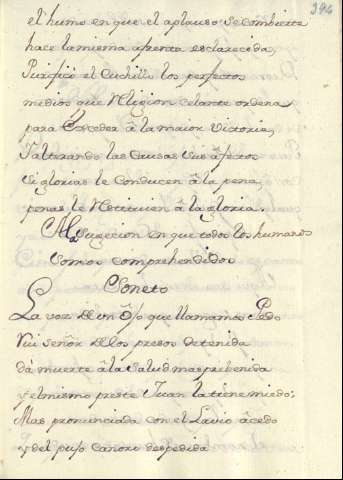 394
el humo en que el aplauso se combierte
hace la misma afrenta esclarecida,
Purificò el Cuchillo los perfectos
medios que Religion celante ordena
para Exceder â la maior Victoria,
Ialterando las Causas sus afectos
si glorias le Conducen â la pena,
penas le Restituien â la gloria.
A la sugecion en que todos los humanos
somos comprehendidos
Soneto
La voz de un Ojo que llamamos Pedo
Rui señor de los presos detenida
dá muerte â la salud mas prebenida
y el mismo preste Juan la tiene miedo:
Mas pronunciada con el Lavio âcedo
y del pujo Canoro despedida